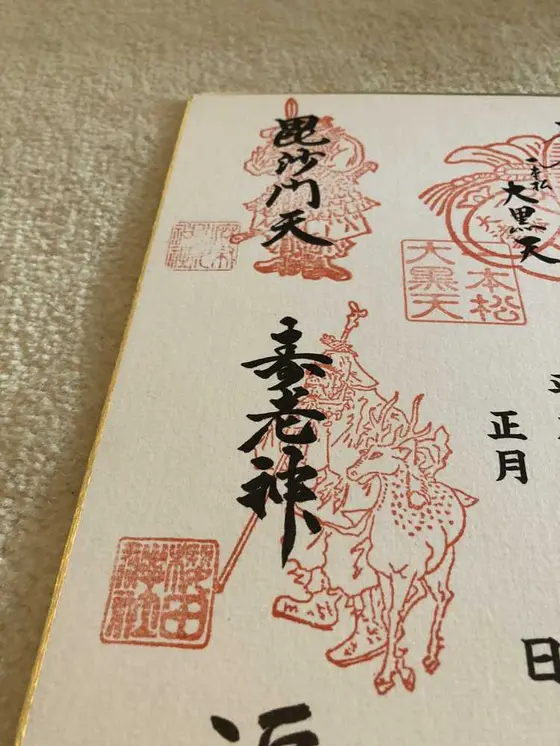 大黒天
本松
大黒天
毘沙門天
正月
日
寿老神
櫻田
神社